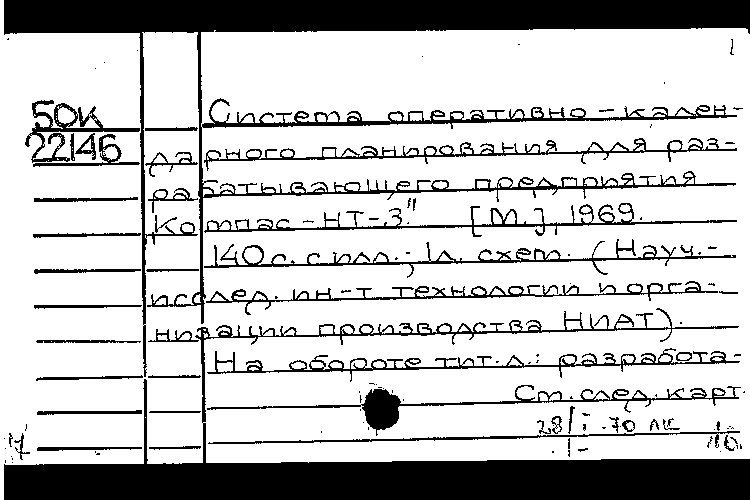 1
50К
22146
Система оперативно-кален-
дарного планирования для раз-
рабатывающего предприятия
Компас-НТ-3" [М.], 1969.
140 с. с илл.; 1л. схем. (Науч.-
исслед. ин-т технологии и орга-
низации производства НИАТ).
На обороте тит. л.: разработа-
Ст. след. карт.
28/I-70